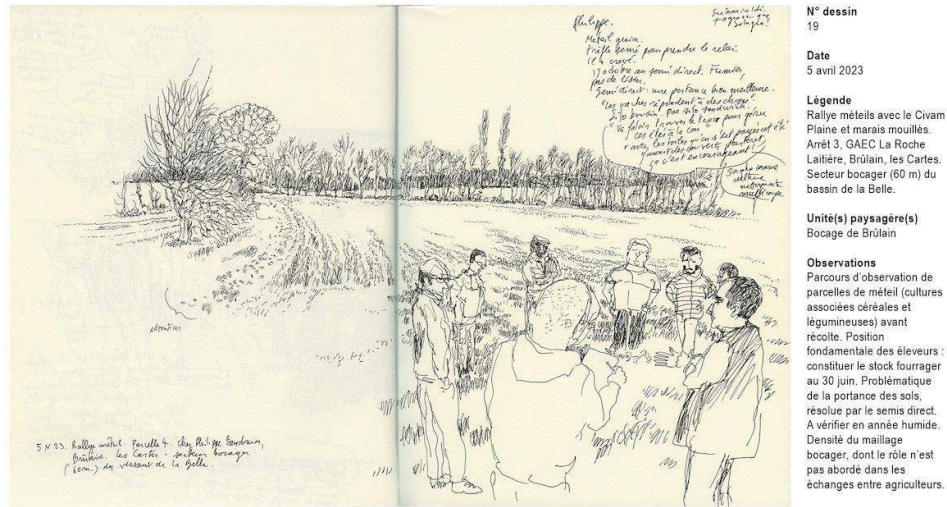 Philippe.
Méteil grain.
trèfle semé pour prendre le relai.
Il a crevé.
19 octobre au semi direct. Fumier,
pas de lisier.
Semi direct : une portance bien meilleure.
"les vaches répondent à des choses".
"avec les tontes qu'on s'est payé cet été
ça c'est encourageant!"
5 IV 23. Rallye méteil. Parcelle 4. chez Philippe
Brûlain. Les Cartes - secteur bocager
(60m.) du versant de la Belle.
N° dessin
19
Date
5 avril 2023
Légende
Rallye méteils avec le Civam
Plaine et marais mouillés.
Arrêt 3, GAEC La Roche
Laitière, Brûlain, les Cartes.
Secteur bocager (60 m) du
bassin de la Belle.
Unité(s) paysagère(s)
Bocage de Brûlain
Observations
Parcours d'observation de
parcelles de méteil (cultures
associées céréales et
légumineuses) avant
récolte. Position
fondamentale des éleveurs :
constituer le stock fourrager
au 30 juin. Problématique
de la portance des sols,
résolue par le semis direct.
A vérifier en année humide.
Densité du maillage
bocager, dont le rôle n'est
pas abordé dans les
échanges entre agriculteurs.